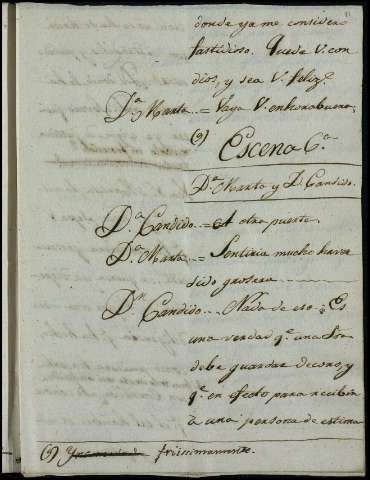 donde ya me considero
fastidioso. Quede V. con
dios, y sea V. feliz.
D.ª Marta = Vaya V. enhorabuena.
(9)
Escena 6.ª
D.ª Marta y D. Candido.
D.n Candido = A otra puerta.
D.ª Marta = Sentiria mucho haver
sido grosera
D.n Candido Nada de eso: Es
una verdad q.e una Sra
debe guardar decoro, y
q.e en efecto para recibir
à una persona de estima
(9) friissimamente.